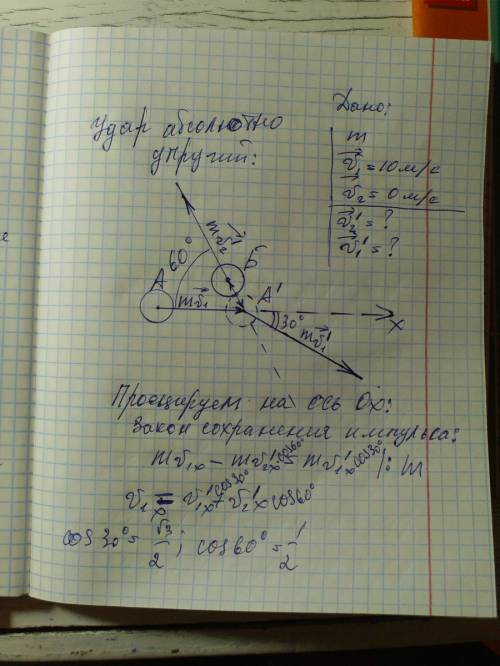 Дано:
Удар абсолютно
упругий:
m
v⃗₁ = 10 м/с
v⃗₂ = 0 м/с
v⃗₂' = ?
v⃗₁' = ?
mv⃗₂'
60°
Б
A
A'
mv⃗₁
30°
mv⃗₁'
x
Проецируем на ось Ox:
Закон сохранения импульса:
mv₁ₓ - mv₂ₓ' cos60° = mv₁ₓ' cos30° |: m
v₁ₓ = v₁ₓ' cos30° + v₂'ₓ cos60°
cos30° = √3/2 ; cos60° = 1/2